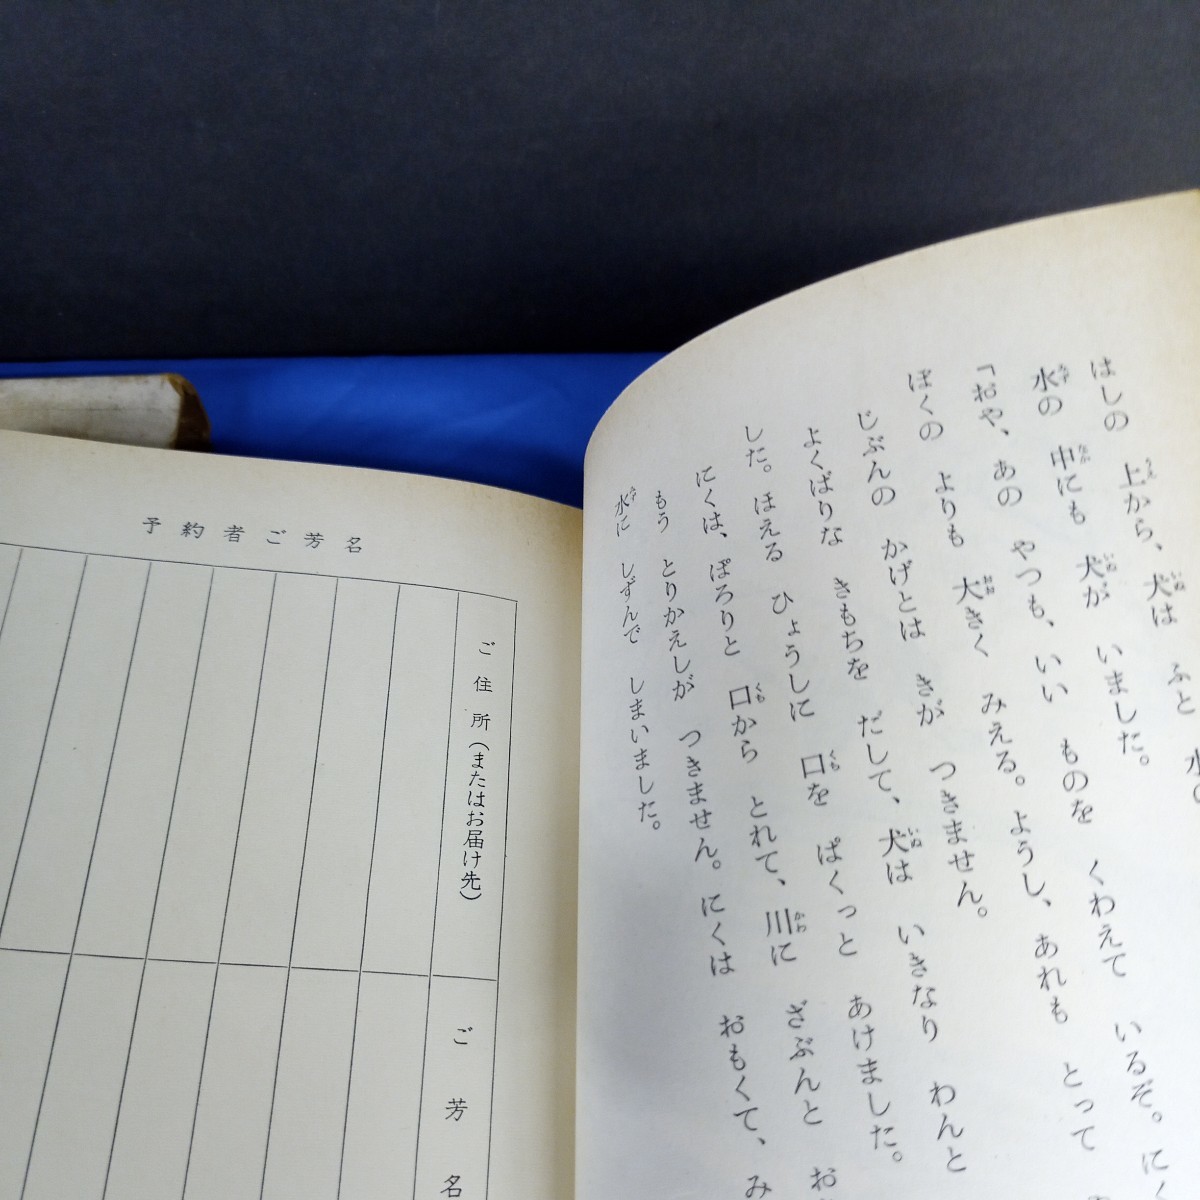 はしの 上から、犬は ふと 水の
水の 中にも 犬が いました。
「おや、あの やつも、いい ものを くわえて いるぞ。にく
ぼくの よりも 大きく みえる。ようし、あれも とって
じぶんの かげとは きが つきません。
よくばりな きもちを だして、犬は いきなり わんと
した。ほえる ひょうしに 口を ぱくっと あけました。
にくは、ぽろりと 口から とれて、川に ざぶんと お
もう とりかえしが つきません。にくは おもくて、み
水に しずんで しまいました。
予約者ご芳名
ご住所(またはお届け先)
ご芳名